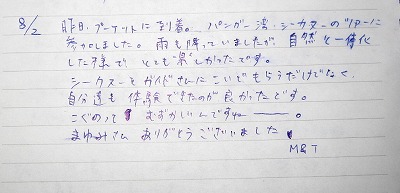 8/2
昨日、プーケットに到着。パンガー湾シーカヌーのツアーに
参加しました。雨も降っていましたが、自然と一体化
した様で、とても楽しかったです。
シーカヌーをガイドさんにこいでもらうだけでなく、
自分達も体験できたのが良かったです。
こぐのって むずかしいんですねー。
まゆみさん ありがとうございました!
M&T